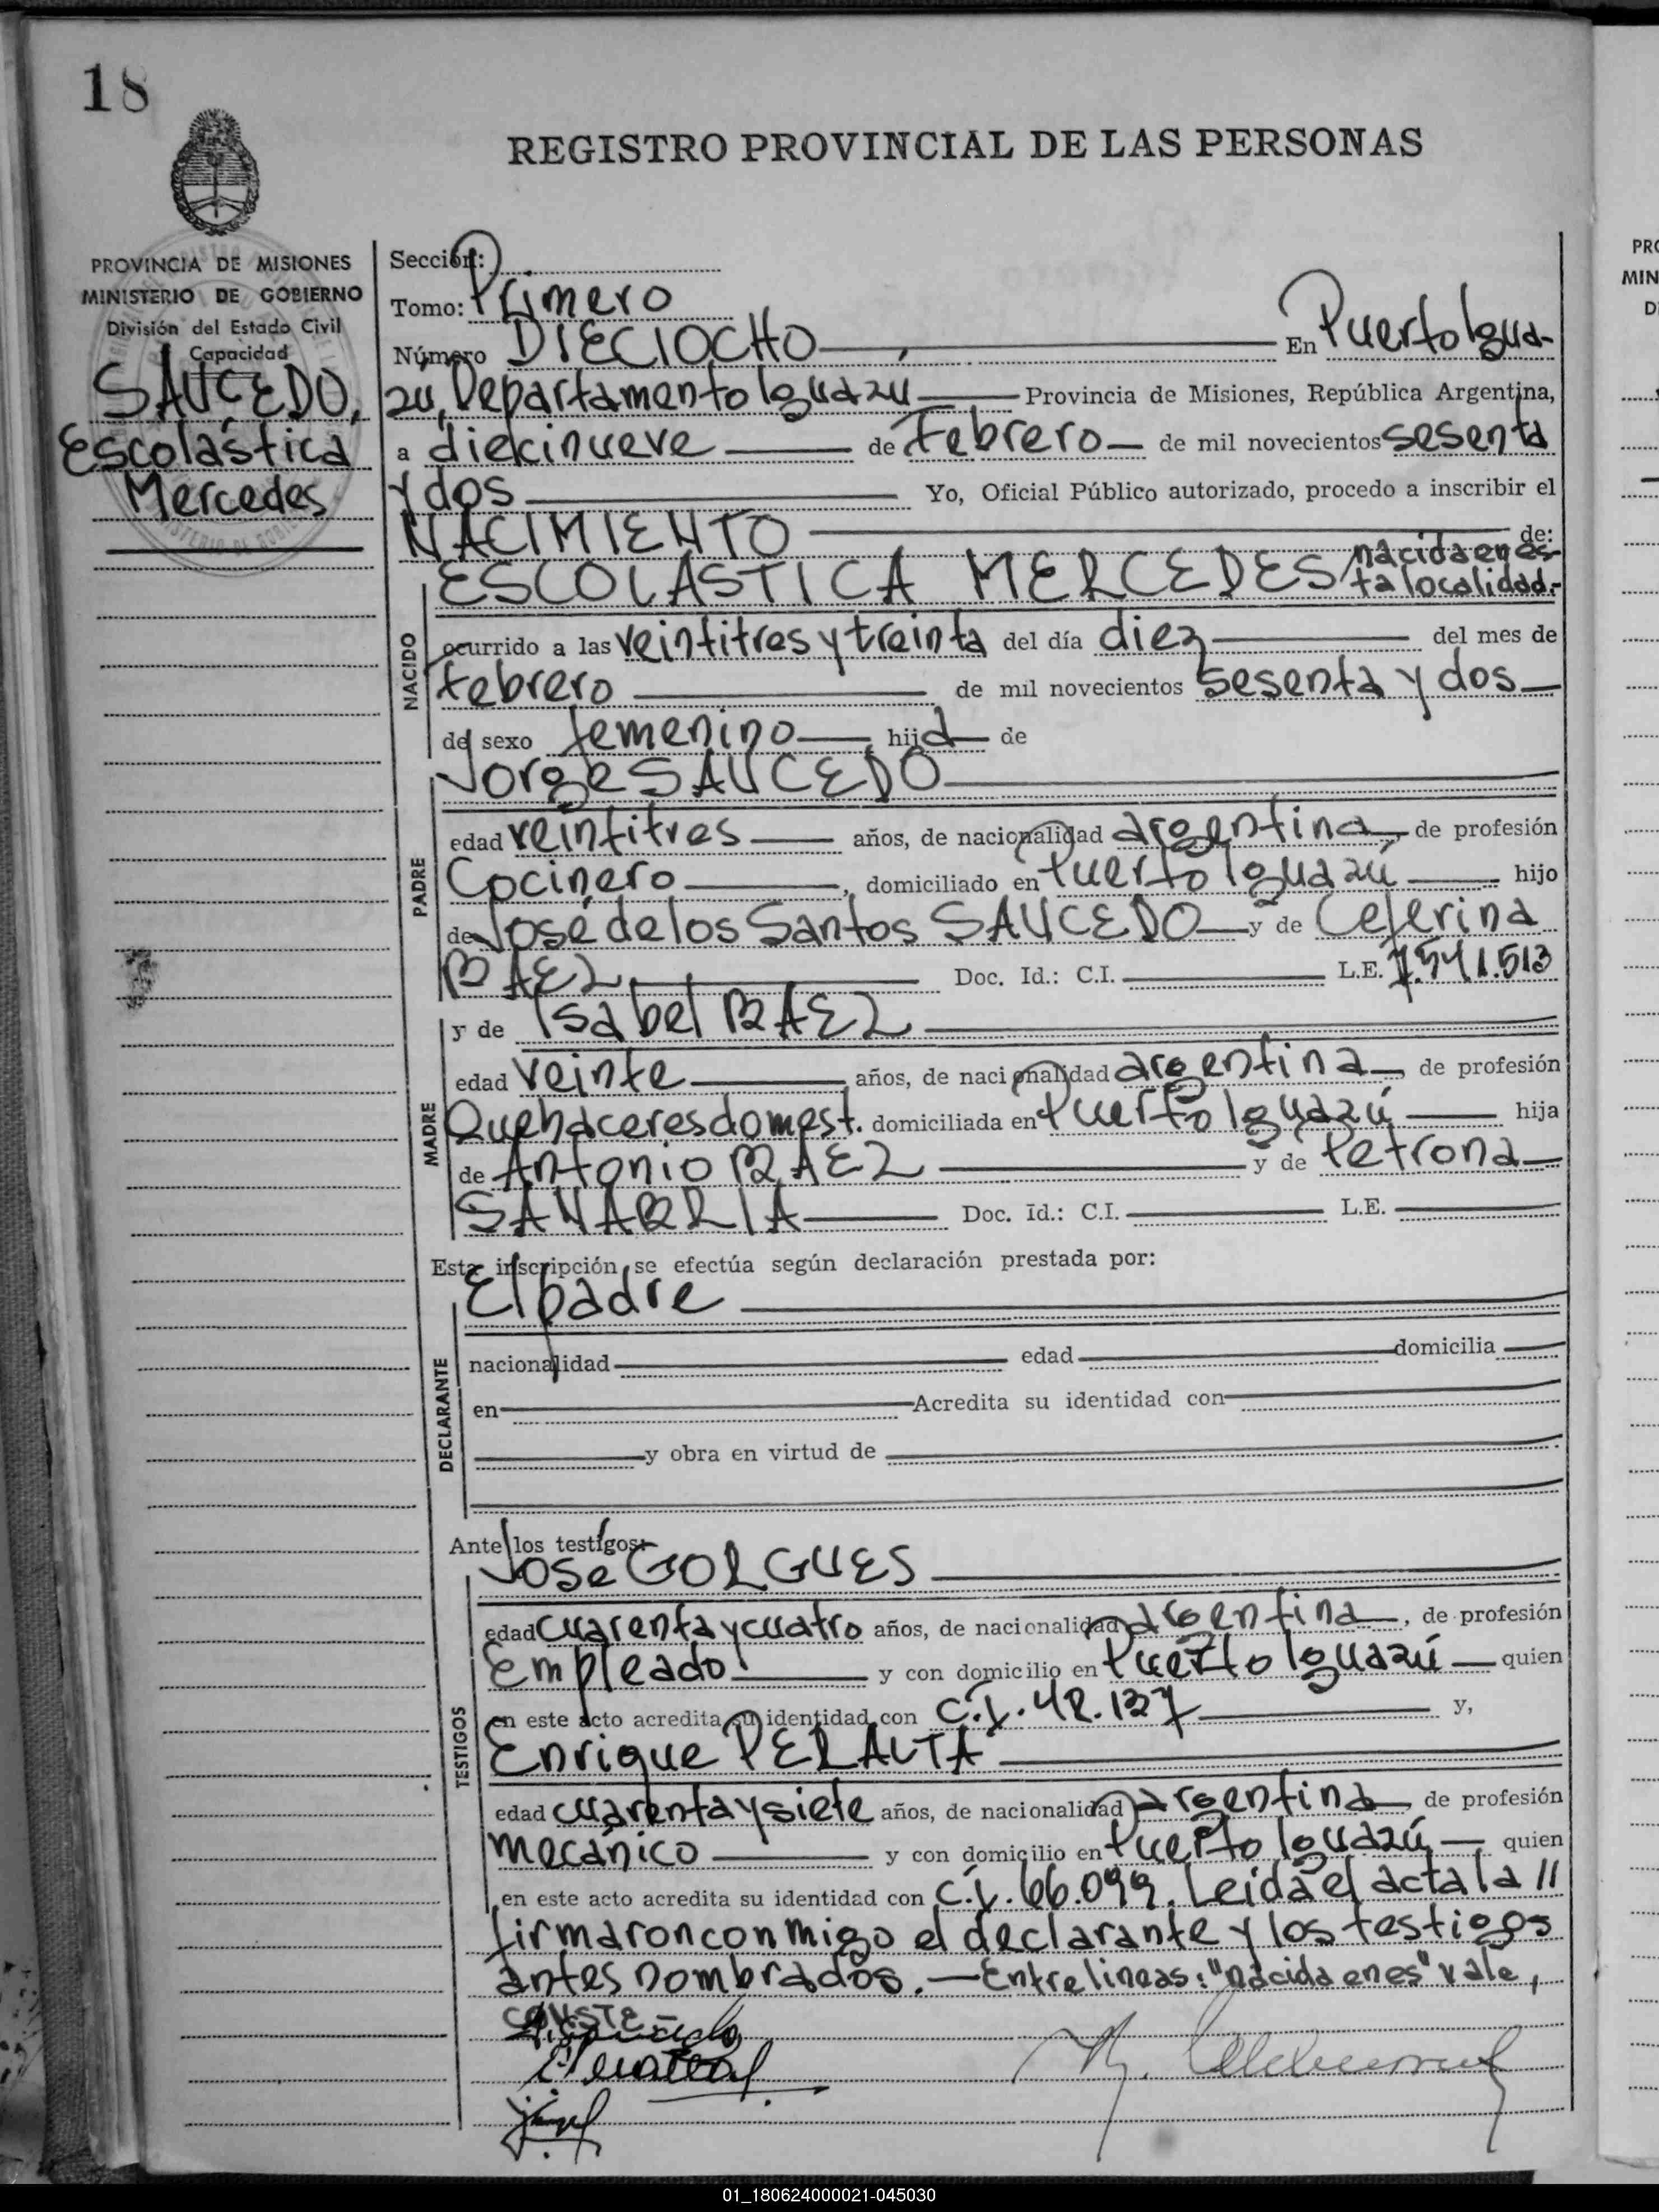 18
REGISTRO PROVINCIAL DE LAS PERSONAS
PROVINCIA DE MISIONES
MINISTERIO DE GOBIERNO
División del Estado Civil
Capacidad
SAUCEDO,
Escolástica
Mercedes
Sección:
Tomo: Primero
Número DIECIOCHO En Puerto Igua-
zu, Departamento Iguazu Provincia de Misiones, República Argentina,
a diecinueve de Febrero de mil novecientos sesenta
y dos Yo, Oficial Público autorizado, procedo a inscribir el
NACIMIENTO de:
ESCOLASTICA MERCEDES/nacida en es-
ta localidad.-
NACIDO
ocurrido a las veintitres y treinta del día diez del mes de
febrero de mil novecientos sesenta y dos
de sexo femenino, hija de
Jorge SAUCEDO
PADRE
edad veintitres años, de nacionalidad argentina, de profesión
Cocinero, domiciliado en Puerto Iguazú hijo
de José de los Santos SAUCEDO y de Ceferina
BAEZ Doc. Id.: C.I. L.E. 7.541.513
y de Isabel BAEZ
MADRE
edad veinte años, de nacionalidad argentina, de profesión
Quehaceres domest. domiciliada en Puerto Iguazú hija
de Antonio BAEZ y de Petrona
SANABRIA Doc. Id.: C.I. L.E.
Esta inscripción se efectúa según declaración prestada por:
El padre
DECLARANTE
nacionalidad edad domicilia
en Acredita su identidad con
y obra en virtud de
Ante los testigos:
José GORGUES
TESTIGOS
edad cuarenta y cuatro años, de nacionalidad argentina, de profesión
Empleado y con domicilio en Puerto Iguazú quien
en este acto acredita su identidad con C.I. 42.137 y,
Enrique PERALTA
edad cuarenta y siete años, de nacionalidad argentina, de profesión
mecánico y con domicilio en Puerto Iguazú quien
en este acto acredita su identidad con C.I. 66.099. Leída el acta la //
firmaron conmigo el declarante y los testigos
antes nombrados.—Entrelineas: "nacida en es" vale,
CONSTE.-
01_180624000021-045030